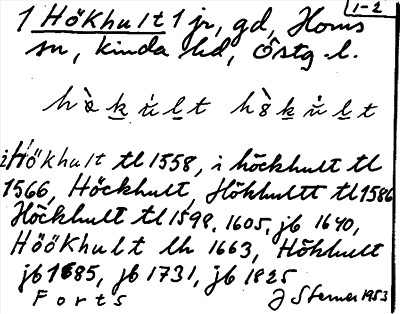 1-2
1 Hökhult 1 jr, gd, Horns
sn, kinda hd, Östg. l.
i Hökhult tl 1558, i höckhult tl
1566, Höckhult, Hökhultt tl 1586
Höckhult tl 1598, 1605, jb 1640,
Höökhult lh 1663, Hökhult
jb 1685, jb 1731, jb 1825
Forts J Sterner 1953